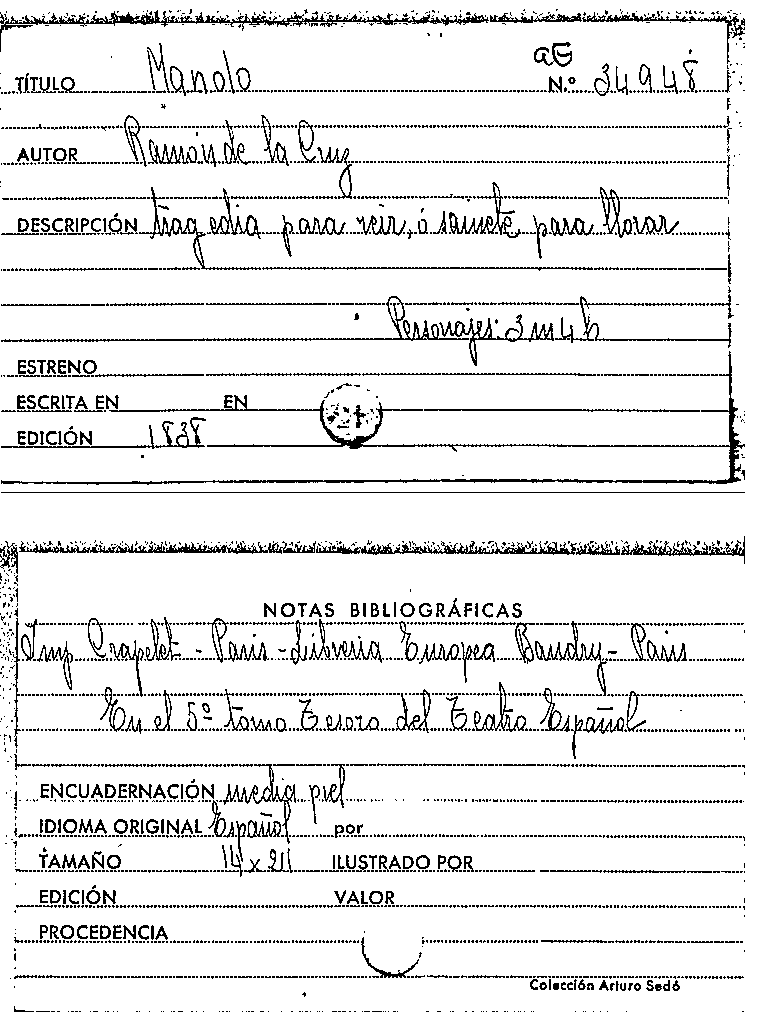 TÍTULO Manolo N.º 34948
AUTOR Ramón de la Cruz
DESCRIPCIÓN tragedia para reir, ó sainete para llorar
Personajes: 3 m 4 h
ESTRENO
ESCRITA EN EN
EDICIÓN 1838
NOTAS BIBLIOGRÁFICAS
Imp Crapelet - Paris - Libreria Europea Baudry - Paris
En el 5º tomo Tesoro del Teatro Español
ENCUADERNACIÓN media piel
IDIOMA ORIGINAL Español por
TAMAÑO 14 x 21 ILUSTRADO POR
EDICIÓN VALOR
PROCEDENCIA
Colección Arturo Sedó